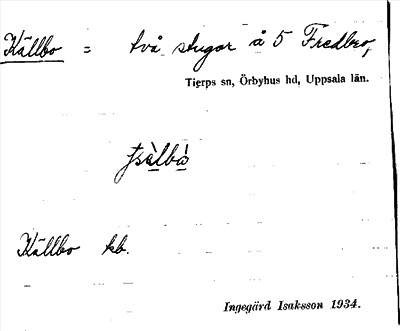 Källbo = två stugor å 5 Fredbro,
Tierps sn, Örbyhus hd, Uppsala län.
Källbo kb.
Ingegärd Isaksson 1934.